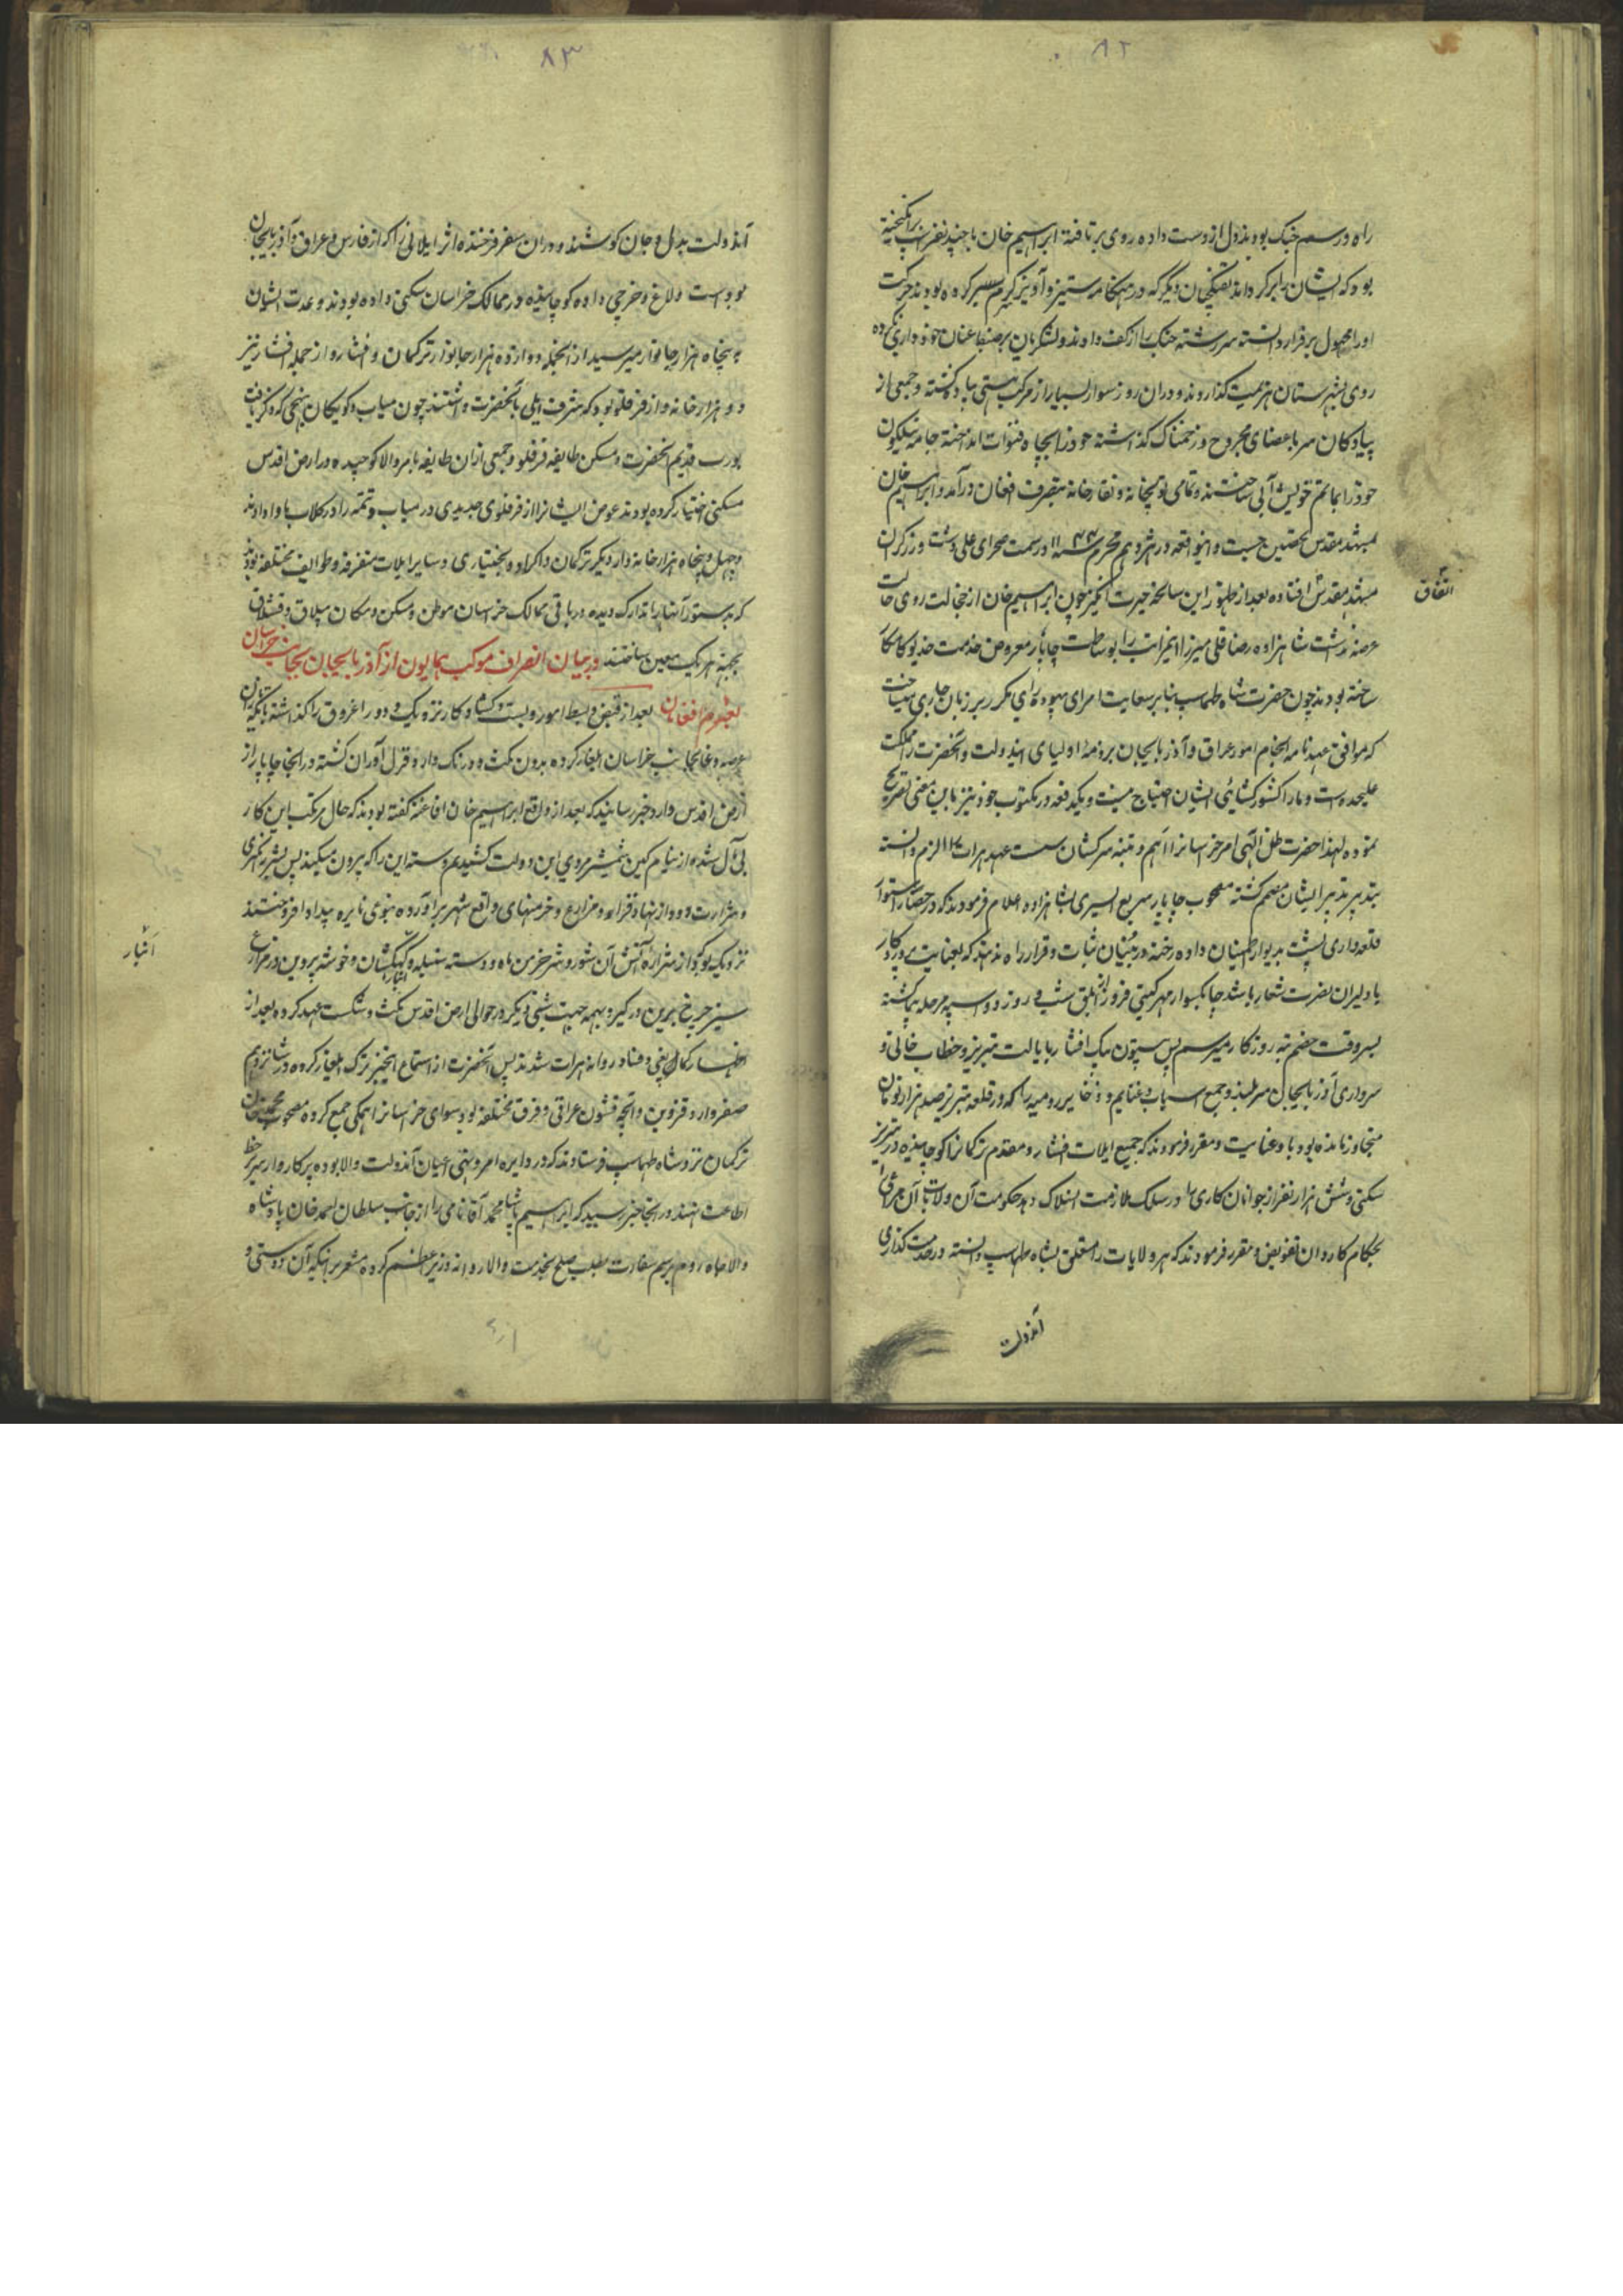 ۸۲
راه و رسم جنک بودند دل از دست داده روی برتافته ابراهیم خان با چند نفر اسب برانکیخته
بود که ایشان را برکرداند تفنکچیان دیکر که در هنکامه ستیز و آویز کرم سیر کرده بودند حرکت
او را محمول بر فرار دانسته سررشته جنک را از کف دادند و لشکریان عنان خودداری کرده
روی بشهرستان هزیمت کذاردند و دران روز سوار بسیار از مرکب هستی پیاده کشته و جمعی از
پیادکان سر با عضای مجروح و زخمناک کذاشته خود را بچاه قنوات انداخته جامه نیلکون
خود را بماتم خویش آبی ساختند و تمامی توپخانه و نقارخانه بتصرف افغان درآمد و ابراهیم خان
بمشهد مقدس تحصین جست و اینواقعه در هژدهم محرم سنه ۱۱۴۳ در سمت صحرای علی دشت و زرکران
مشهد مقدس افتاده بعد از ظهور این سانحه حیرت انکیز چون ابراهیم خان از خجالت روی حالت
اتفاق
عرضه نداشت شاهزاده رضا قلی میرزا اینمراتب را بوساطت چاپار معروض خدمت خدیو کامکار
ساخته بودند چون حضرت شاه طهماسب بنابر سعایت امرای بیهوده رای مکرر بر زبان جاری میساخت
که موافق عهدنامه انجام امور عراق و آذربایجان بر ذمه اولیای ایندولت و آنحضرت را مملکت
علیحده است و ما را کشورکشائی ایشان احتیاج نیست و یکدفعه در مکتوب خود نیز باین معنی تصریح
نموده لهذا حضرت ظل الهی امر خراسانرا اهم و تنبیه سرکشان سست عهد هرات را الزم دانسته
بتدبیر ایشان مصمم کشته مصحوب چاپار سریع السیری بشاهزاده اعلام فرمودند که در حصار استوار
قلعه داری پشت بدیوار اطمینان داده رخنه در بنیان ثبات و قرار راه ندهند که بعنایت پروردکار
با دلیران نصرت شعار باشد چابکسوار مهر کیتی فروز از ابلق شب و روز دو اسپه مرحله پیما کشته
بسروقت خصم تیره روزکار میرسم پس بیستون بیک افشار بایالت تبریز و خطاب خانی و
سرداری آذربایجان سربلند و جمیع اسباب و غنایم و ذخایر رومیه را که در قلعه تبریز صد هزار تومان
متجاوز مانده بود باو عنایت و مقرر فرمودند که جمیع ایلات افشار و مقدم ترکمانرا کوچانیده در تبریز
سکنی و شش هزار نفر از جوانان کاری را در سلک ملازمت انسلاک دهد حکومت آن ولایات
بحکام کاردان تفویض و مقرر فرمودند که هر ولایات را متعلق بشاه طهماسب دانسته در خدمت کذاری
آندولت
۸۳
آندولت بدل و جان کوشند و دران سفر فرخنده اثر ایلاتی را که از فارس و عراق و آذربایجان
الاغ و خرجی داده کوچانیده در ممالک خراسان سکنی داده بودند و عدت ایشان
به پنجاه هزار خانوار میرسید از انجمله دوازده هزار خانوار ترکمان و افشار و از جمله افشار نیز
دو هزار خانه وار از قرقلو بود که شرف ایلی بآنحضرت داشتند چون میاب و کوبکان بنهجی که ذکر یافت
یورت قدیم آنحضرت و مسکن طایفه قرقلو و جمعی ازان طایفه بامر والا کوچیده در ارض اقدس
مسکنی اختیار کرده بودند عوض ایشانرا از قرقلوی جدیدی در میاب و تتمه را در کلات ماوا دادند
و چهل و پنجاه هزار خانه وار دیکر ترکمان و اکراد و بختیاری و سایر ایلات متفرقه و طوایف مختلفه بودند
که بدستور آنها را تدارک دیده در باقی ممالک خراسان موطن و مسکن و مکان ییلاق و قشلاق
بجهة هر یک معین ساختند در بیان انصراف موکب همایون از آذربایجان بجانب خراسان
بعزم افغان بعد از قبض و بسط امور و بست و کشاد کار نزدیک و دور اغروق را کذاشته
خراسان ایلغار کرده بدون مکث و درنک وارد قزل اوزان کشته در انجا چاپار از
ارض اقدس وارد و خبر رسانید که بعد از واقعه ابراهیم خان افاغنه کفته بودند که حال مرتکب این کار
بی مآل شده و از نیام کین شمشیر بر روی این دولت کشیدیم
و شرارت دود از نهاد قراء و مزارع و خرمنهای واقع شهر برآورده بنوی نایره بیداد افروختند
نزدیک بود از شراره آتش آن شور و شر خرمن ماه و دسته سنبله و کهکشان و خوشه پروین در مزارع
انبار
سبز چرخ برین درکیرد بهمه جهت شبی دیکر در حوالی ارض اقدس مکث و شکست عهد کرده بعد از
اظهار کمال بغی و عناد روانه هرات شدند پس آنحضرت از استماع اینخبر ترک ایلغار کرده در شانزدهم
صفر وارد قزوین و آنچه قشون عراقی و فرق مختلفه بود سوای خراسانرا همکی جمع کرده مصحوب
ترکمان نزد شاه طهماسب فرستادند که در دایره امر و نهی اعیان آندولت والا بوده پرکار وار سر بر خط
اطاعت نهند در انجا خبر رسید که ابراهیم پاشا محمد آقا نامی را از جانب سلطان احمد خان پادشاه
والاجاه روم برسم سفارت بطلب صلح بخدمت والا روانه و وزیر اعظم کرده مشعر بر اینکه آن دوستی و